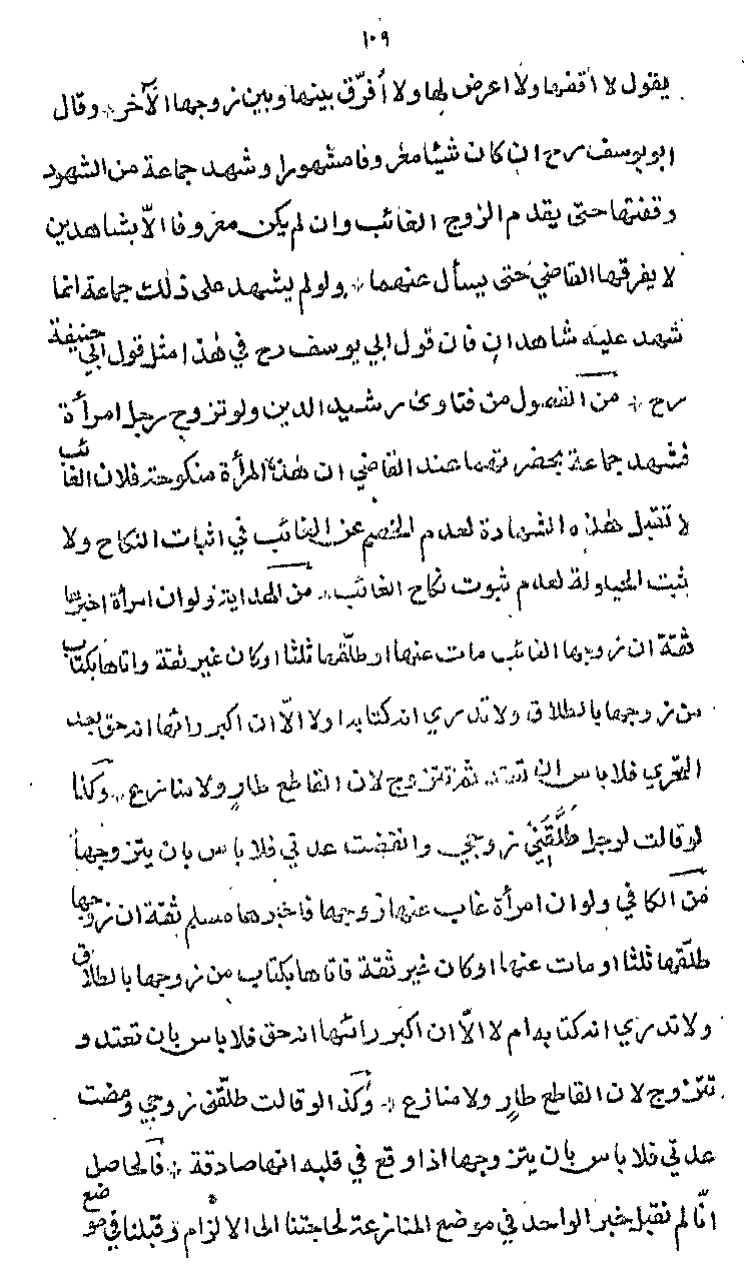 ١٠٩
يقول لا اقفها ولا اعرض لها ولا أُفرّق بينها وبين زوجها الآخر * وقال
ابو يوسف رح ان كان شيئا معروفا مشهورا وشهد جماعة من الشهود
وقفتها حتى يقدم الزوج الغائب وان لم يكن معروفا الّا بشاهدين
لا يفرقها القاضي حتى يسأل عنهما * ولو لم يشهد على ذلك جماعة انما
شهد عليه شاهدان فان قول ابي يوسف رح في هذا مثل قول ابي حنيفة
رح * من الفصول من فتاوى رشيد الدين ولو تزوج رجل امرأة
فشهد جماعة بحضرتهما عند القاضي ان هذه المرأة منكوحة فلان الغائب
لا تقبل هذه الشهادة لعدم الخصم عن الغائب في اثبات النكاح ولا
يثبت الحيلولة لعدم ثبوت نكاح الغائب * من الهداية ولو ان امرأة اخبرها
ثقة ان زوجها الغائب مات عنها او طلّقها ثلثا او كان غير ثقة واتاها بكتاب
من زوجها بالطلاق ولا تدري انه كتابه او لا الّا ان اكبر رائها انه حق بعد
التحري فلا باس ان تعتد ثم تتزوج لان القاطع طارٍ ولا منازع * وكذا
لو قالت لرجل طَلَّقَنِي زوجي وانقضت عدتي فلا باس بان يتزوجها
من الكافي ولو ان امرأة غاب عنها زوجها فاخبرها مسلم ثقة ان زوجها
طلّقها ثلثا او مات عنها او كان غير ثقة فاتاها بكتاب من زوجها بالطلاق
ولا تدري انه كتابه ام لا الّا ان اكبر رائها انه حق فلا باس بان تعتد و
تتزوج لان القاطع طارٍ ولا منازع * وكذا لو قالت طلّقنى زوجي ومضت
عدتي فلا باس بان يتزوجها اذا وقع في قلبه انها صادقة * فالحاصل
انّا لم نقبل خبر الواحد في موضع المنازعة لحاجتنا الى الالزام وقبلنا في موضع